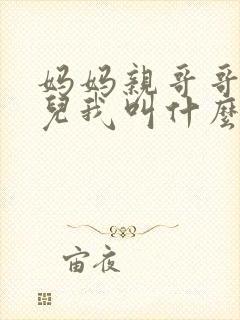 妈妈親哥哥
兒我叫什麼
宙夜